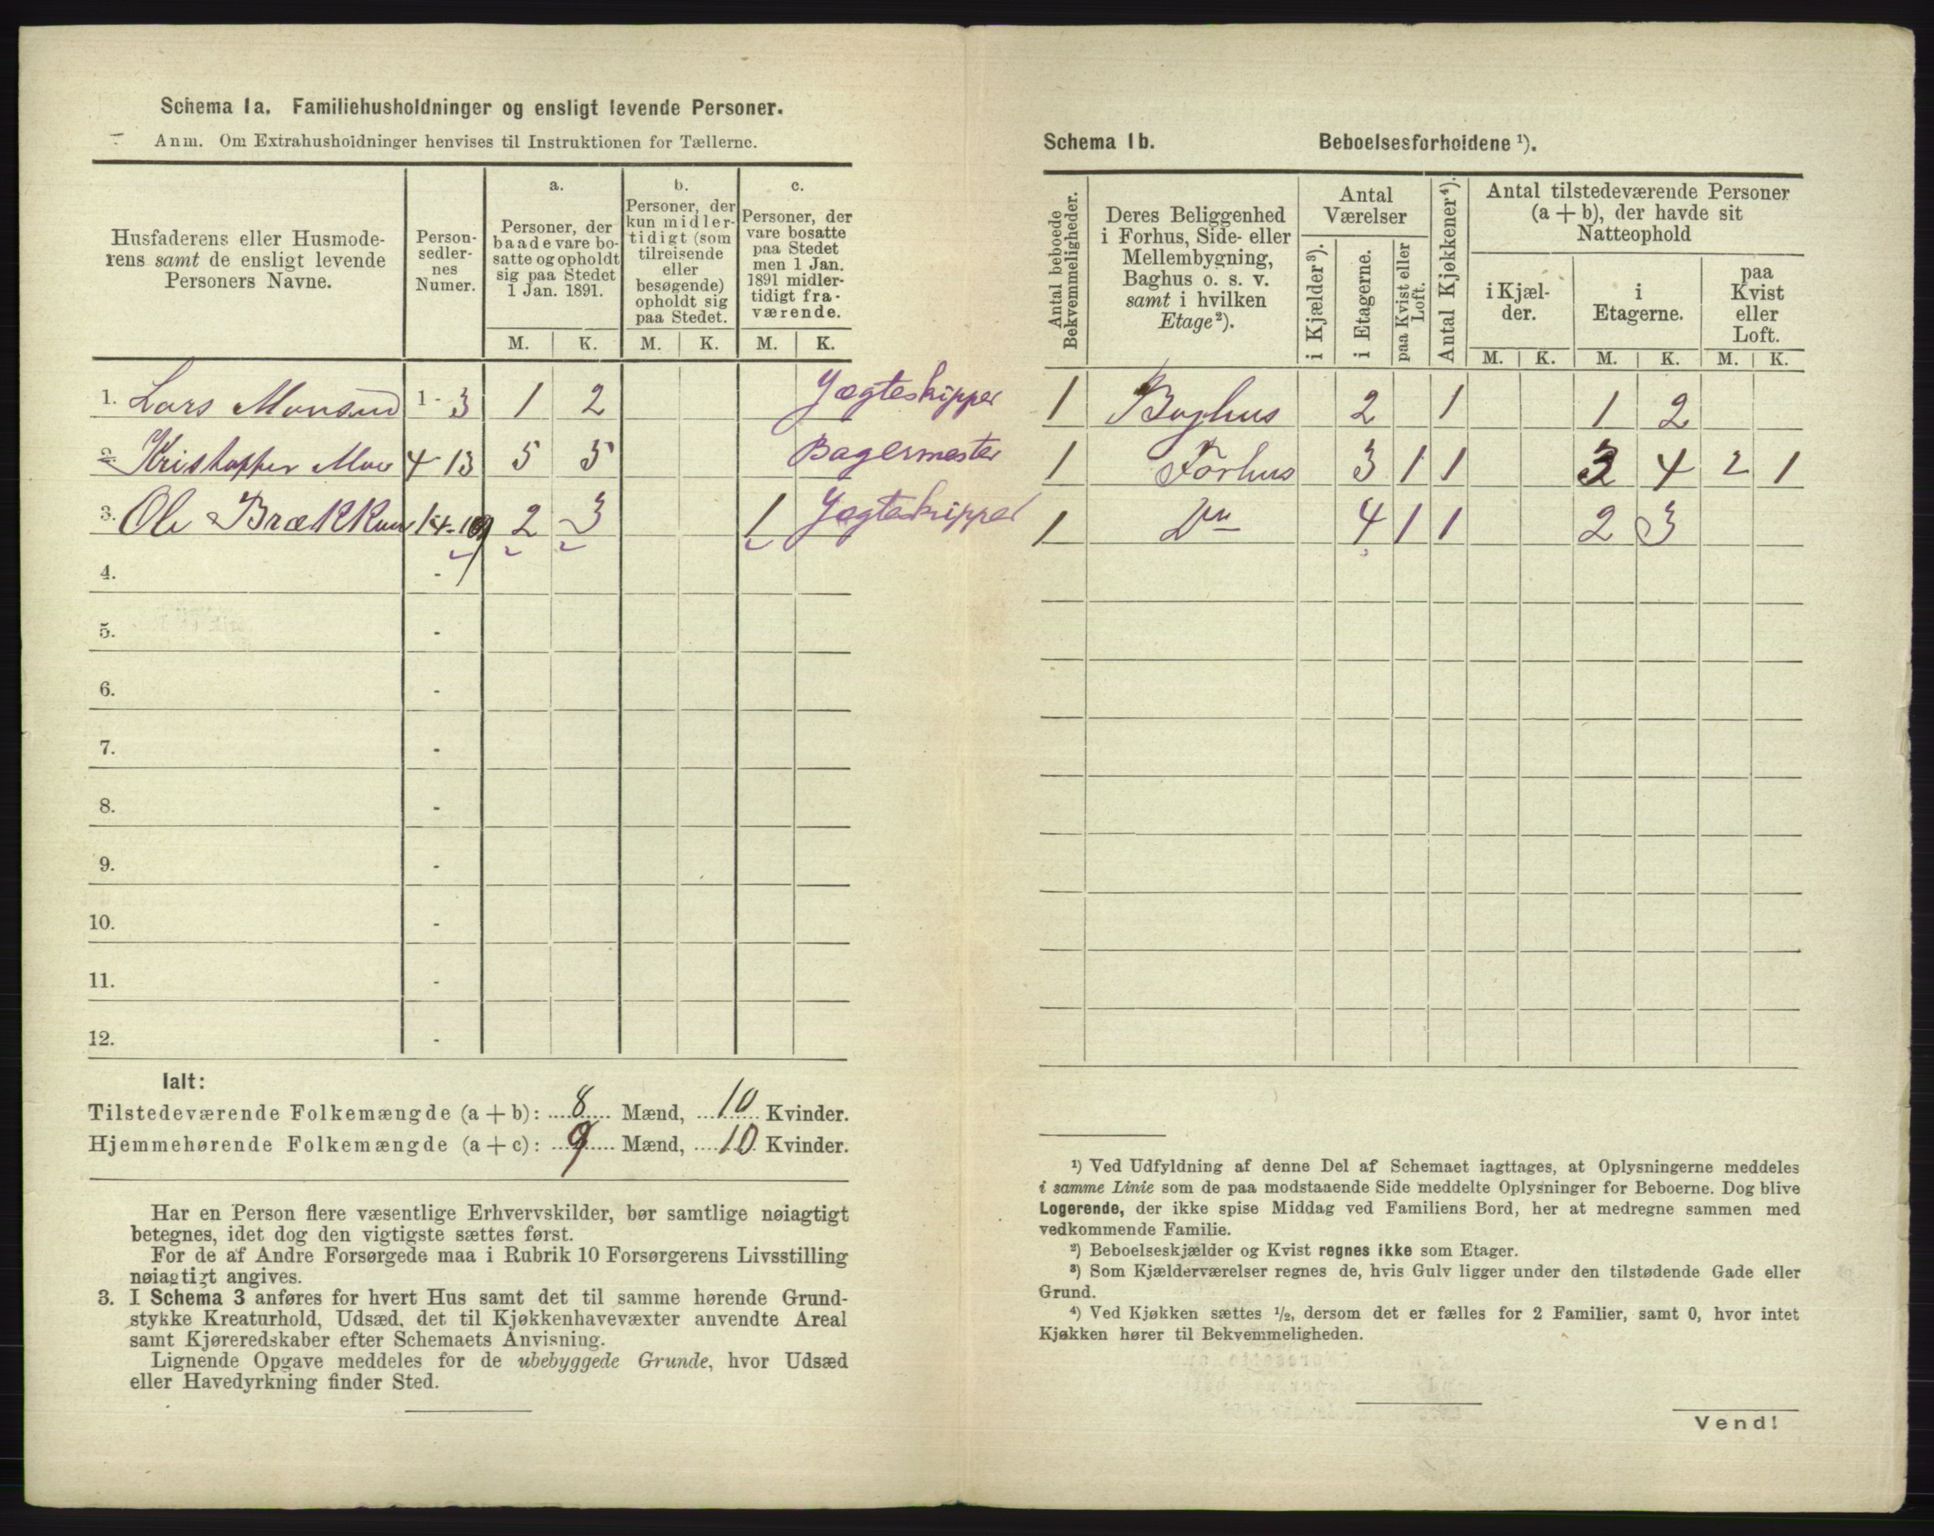 Schema 1a. Familiehusholdninger og ensligt levende Personer.
Anm. Om Extrahusholdninger henvises til Instruktionen for Tællerne.
Husfaderens eller Husmode-
rens samt de ensligt levende
Personers Navne.
Person-
sedler-
nes
Numer.
a.
Personer, der
baade vare bo-
satte og opholdt
sig paa Stedet
1 Jan. 1891.
b.
Personer, der
kun midler-
tidigt (som
tilreisende
eller
besøgende)
opholdt sig
paa Stedet.
c.
Personer, der
vare bosatte
paa Stedet
men 1 Jan.
1891 midler-
tidigt fra-
værende.
M. K. M. K. M. K.
1. Lars Monsen 1 - 3 1 2 Jægteskipper
2. Kristoffer Moe 4 - 13 5 5 Bagermester
3. Ole Brækkan 14-19 2 3 1 Jægteskipper
4. -
5. -
6. -
7. -
8. -
9. -
10. -
11. -
12. -
Ialt:
Tilstedeværende Folkemængde (a + b): 8 Mænd, 10 Kvinder.
Hjemmehørende Folkemængde (a + c): 9 Mænd, 10 Kvinder.
Har en Person flere væsentlige Erhvervskilder, bør samtlige nøiagtigt
betegnes, idet dog den vigtigste sættes først.
For de af Andre Forsørgede maa i Rubrik 10 Forsørgerens Livsstilling
nøiagtigt angives.
3. I Schema 3 anføres for hvert Hus samt det til samme hørende Grund-
stykke Kreaturhold, Udsæd, det til Kjøkkenhavevæxter anvendte Areal
samt Kjøreredskaber efter Schemaets Anvisning.
Lignende Opgave meddeles for de ubebyggede Grunde, hvor Udsæd
eller Havedyrkning finder Sted.
Schema 1b. Beboelsesforholdene ¹).
Antal beboede
Bekvemmeligheder.
Deres Beliggenhed
i Forhus, Side- eller
Mellembygning,
Baghus o. s. v.
samt i hvilken
Etage²).
Antal
Værelser
i Kjælder³).
i Etagerne.
paa Kvist eller
Loft.
Antal Kjøkkener⁴).
Antal tilstedeværende Personer
(a + b), der havde sit
Natteophold
i Kjæl-
der.
i
Etagerne.
paa
Kvist
eller
Loft.
M. K. M. K. M. K.
1 Baghus 2 1 1 2
1 Forhus 3 1 1 3 4 2 1
1 Do 4 1 1 2 3
¹) Ved Udfyldning af denne Del af Schemaet iagttages, at Oplysningerne meddeles
i samme Linie som de paa modstaaende Side meddelte Oplysninger for Beboerne. Dog blive
Logerende, der ikke spise Middag ved Familiens Bord, her at medregne sammen med
vedkommende Familie.
²) Beboelseskjælder og Kvist regnes ikke som Etager.
³) Som Kjælderværelser regnes de, hvis Gulv ligger under den tilstødende Gade eller
Grund.
⁴) Ved Kjøkken sættes ½, dersom det er fælles for 2 Familier, samt 0, hvor intet
Kjøkken hører til Bekvemmeligheden.
Vend!